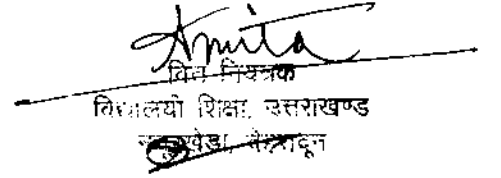 Amita
वित्त नियंत्रक
विद्यालयी शिक्षा, उत्तराखण्ड
देहरादून